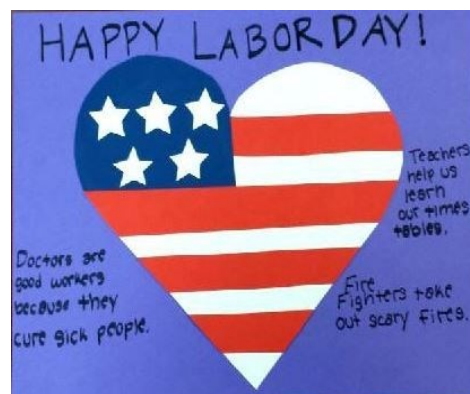 HAPPY LABOR DAY!
Teachers
help us
learn
out times
tables.
Doctors are
good workers
because they
cure sick people.
Fire
Fighters take
out scary fires.